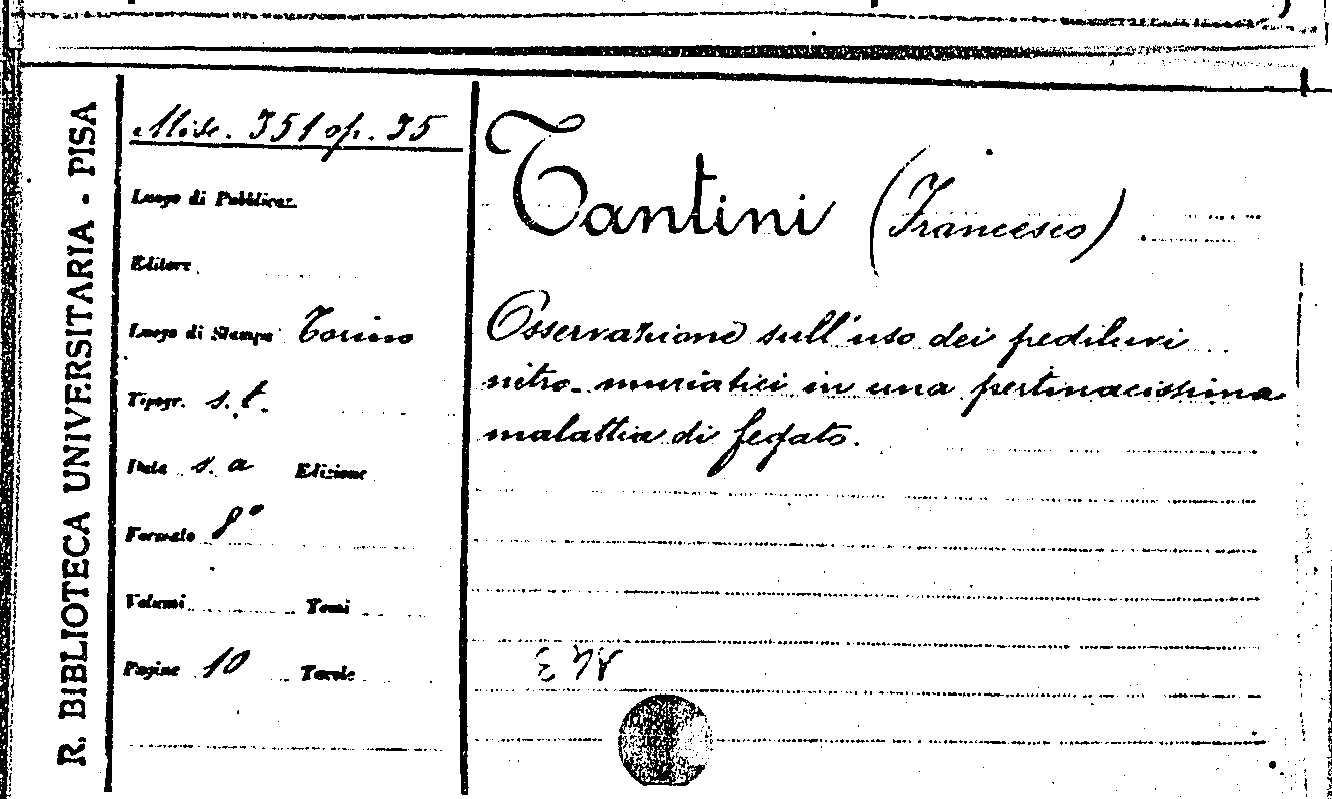 R. BIBLIOTECA UNIVERSITARIA - PISA
Misc. 351 op. 35
Luogo di Pubblicaz.
Editore
Luogo di Stampa Torino
Tipogr. s.t.
Data s. a Edizione
Formato 8°
Volumi Tomi
Pagine 10 Tavole
Tantini (Francesco)
Osservazione sull'uso dei pediluvi
nitro-muriatici in una pertinacissima
malattia di fegato.